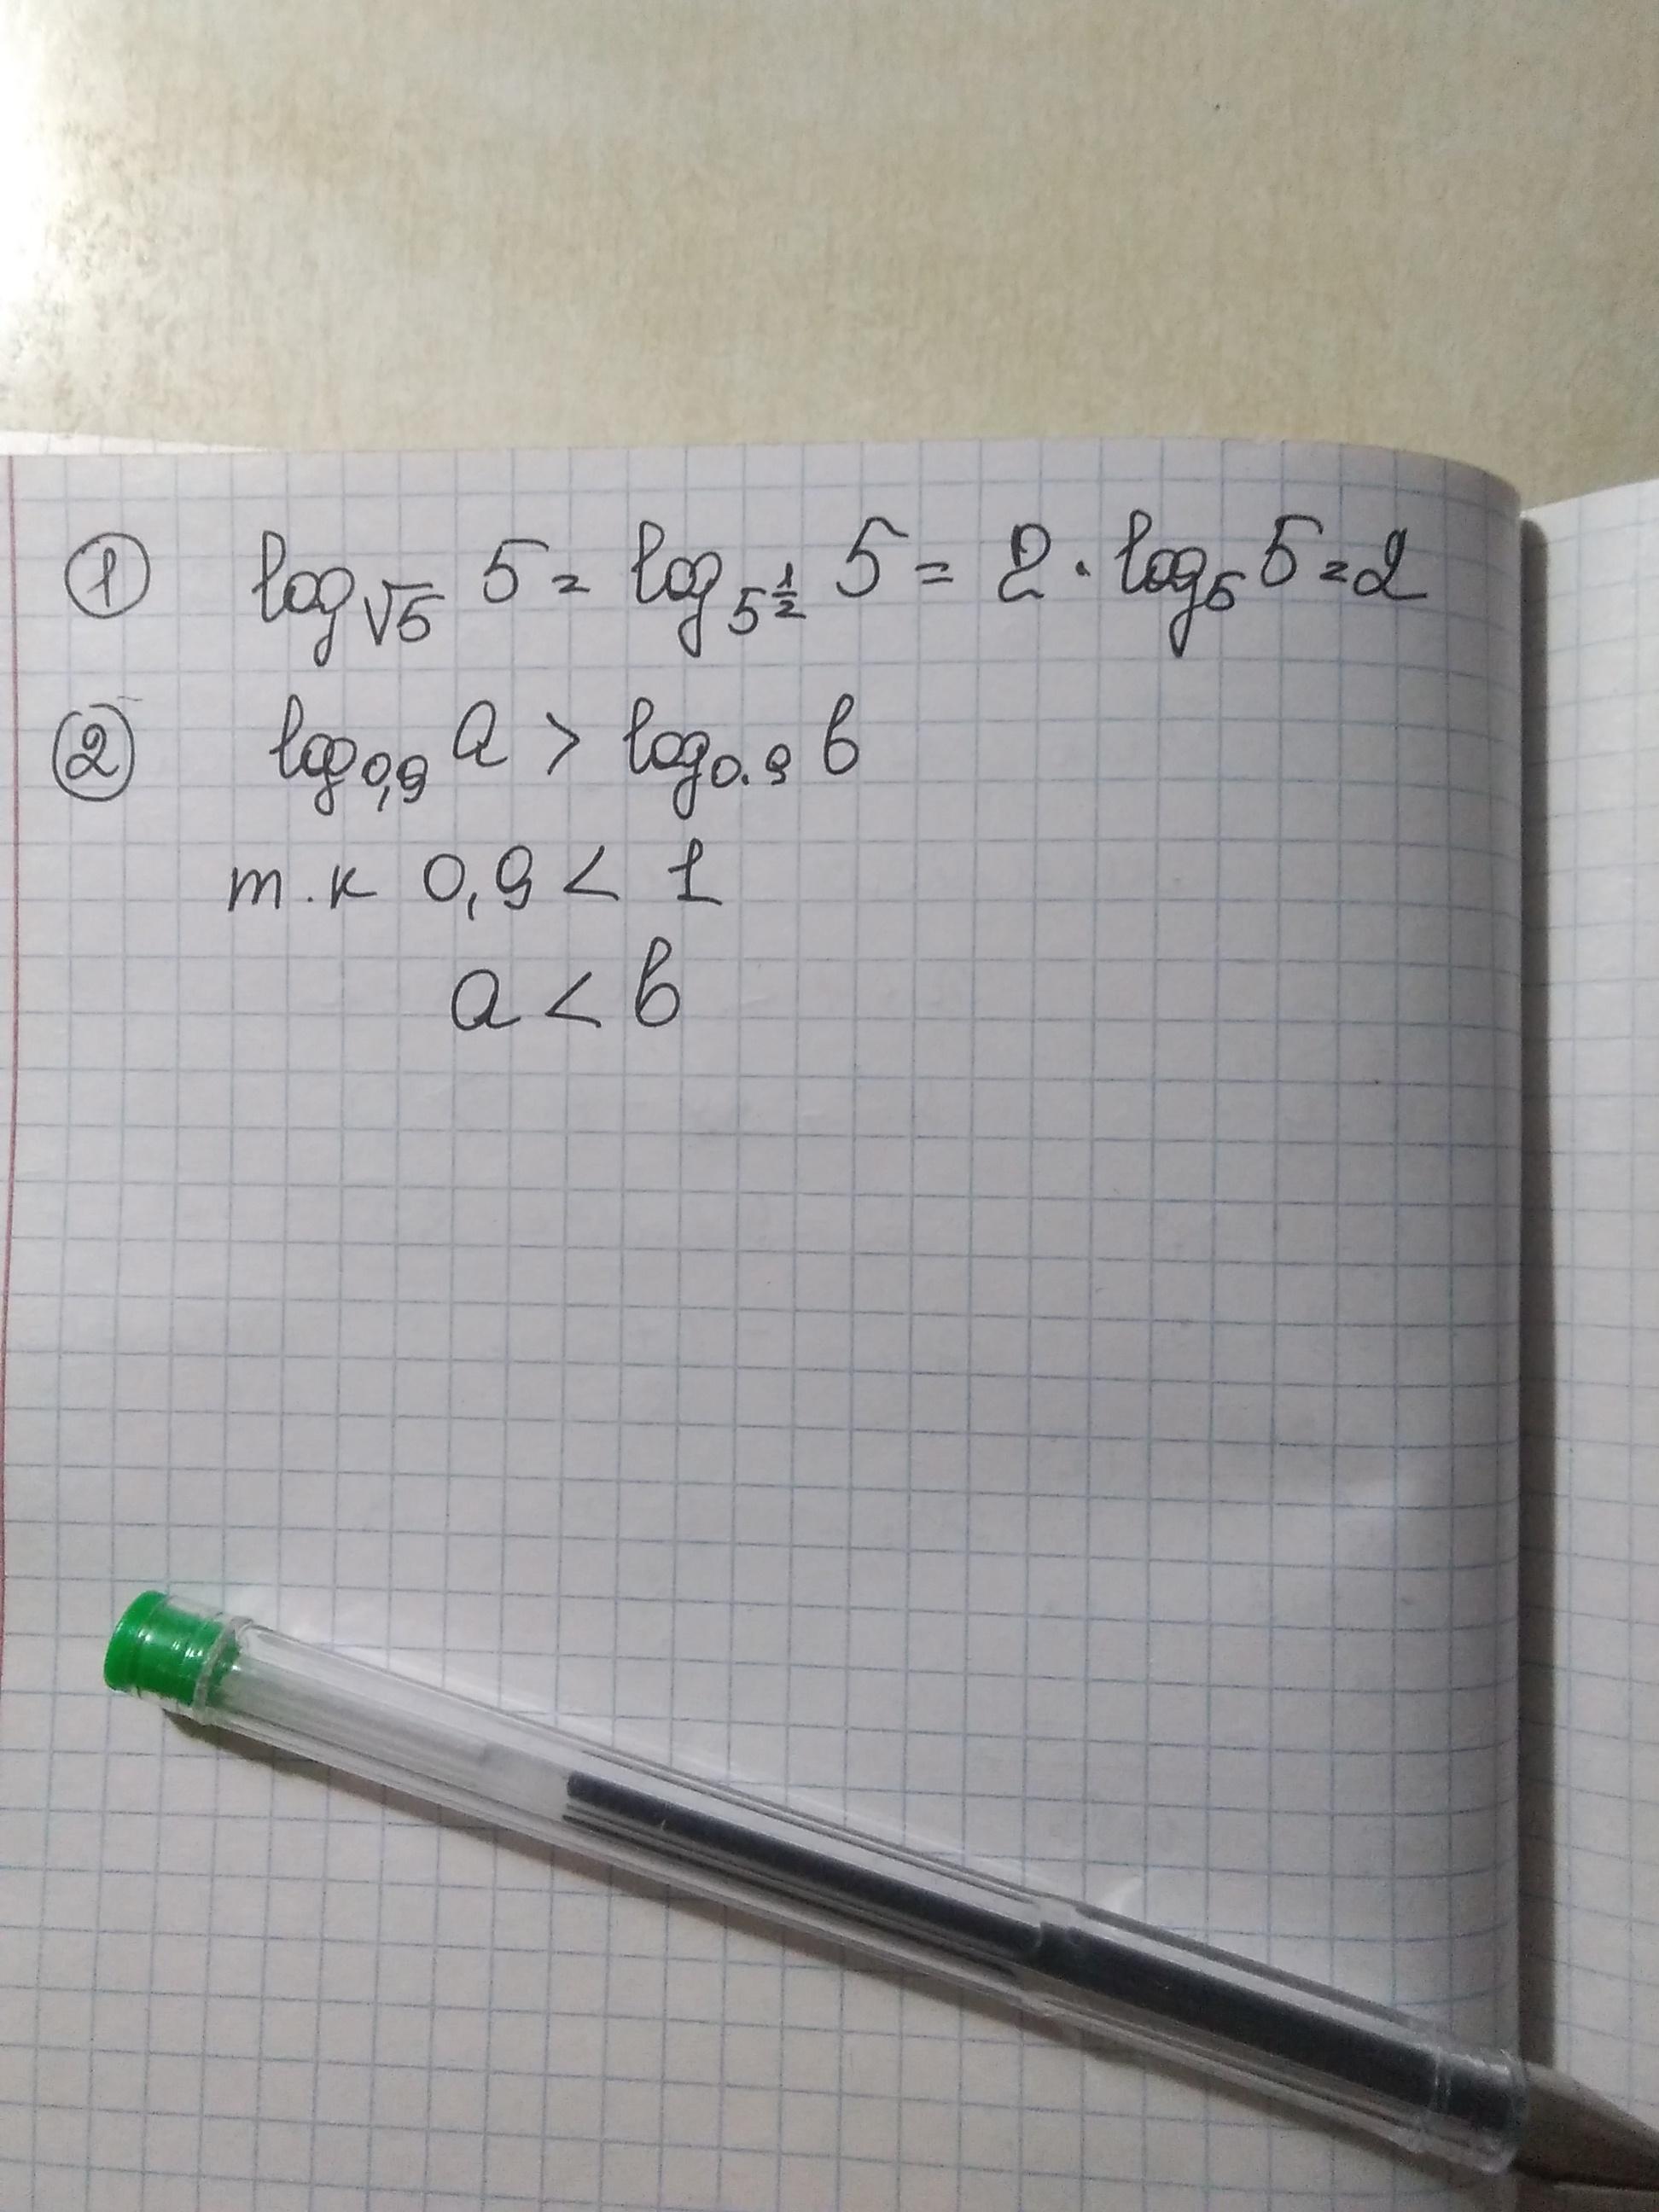 ① log_√5 5 = log_5^½ 5 = 2 · log_5 5 = 2
② log_0,9 a > log_0.9 b
т.к 0,9 < 1
a < b